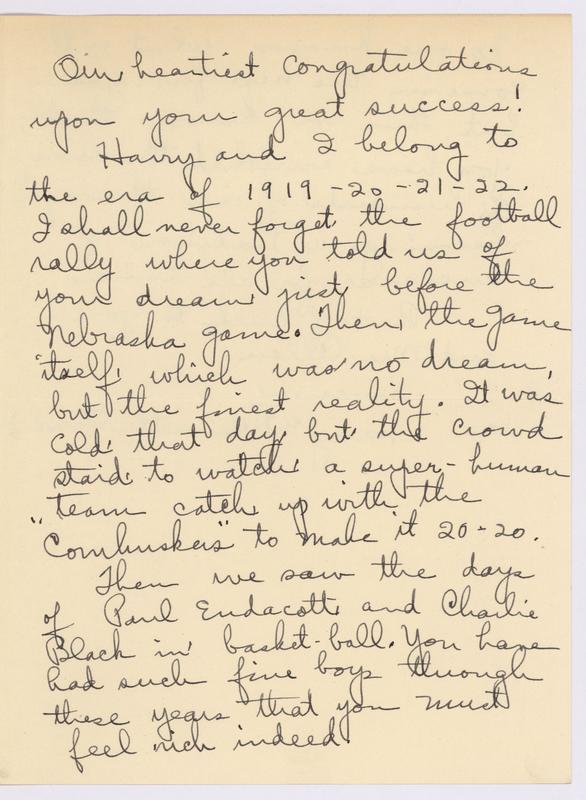 Our heartiest Congratulations
upon your great success!
Harry and I belong to
the era of 1919-20-21-22.
I shall never forget the football
rally where you told us of
your dream just before the
Nebraska game. Then the game
itself which was no dream,
but the finest reality. It was
cold that day, but the crowd
staid to watch a super-human
team catch up with the
"Cornhuskers" to make it 20-20.
Then we saw the days
of Paul Endacott and Charlie
Black in basket-ball. You have
had such fine boys through
these years that you must
feel rich indeed.